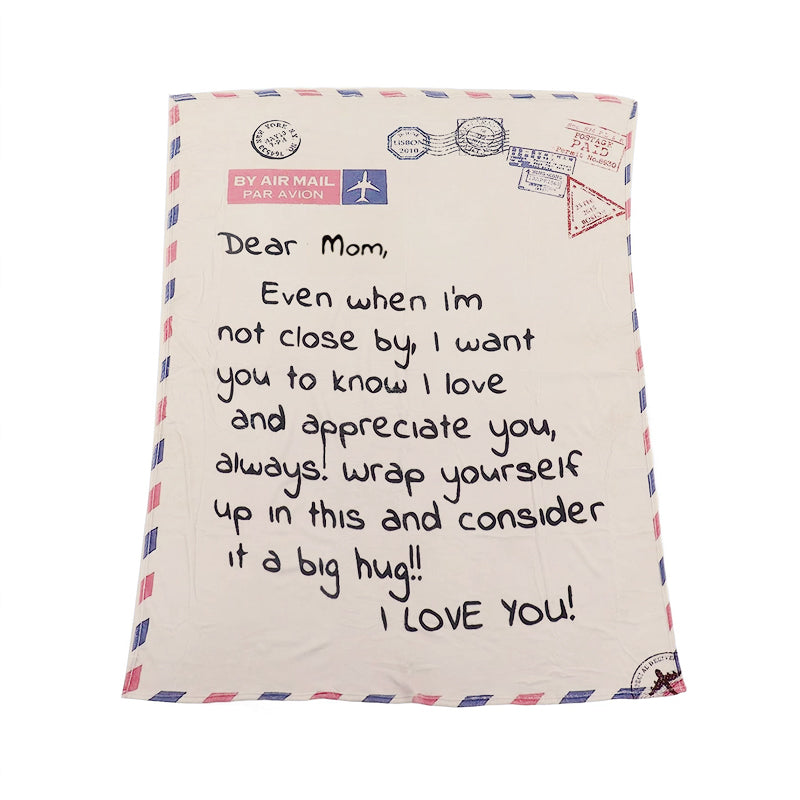 LISBON
2010
POSTAGE
PAID
Permit No.
BY AIR MAIL
PAR AVION
Dear Mom,
Even when I'm
not close by, I want
you to know I love
and appreciate you,
always! wrap yourself
up in this and consider
it a big hug!!
I LOVE YOU!
SPECIAL DELIVERY